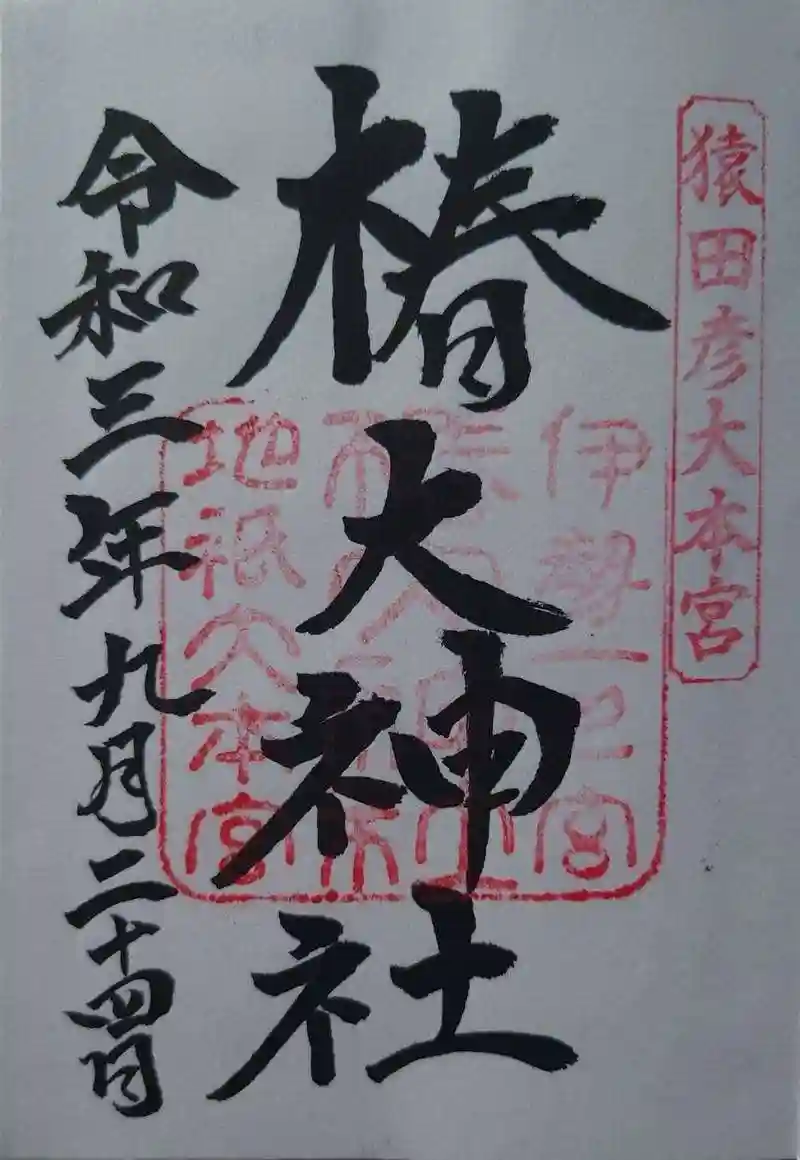 猿田彦大本宮
伊勢一之宮
椿大神社
椿大神社
地祇大本宮
令和三年九月二十四日